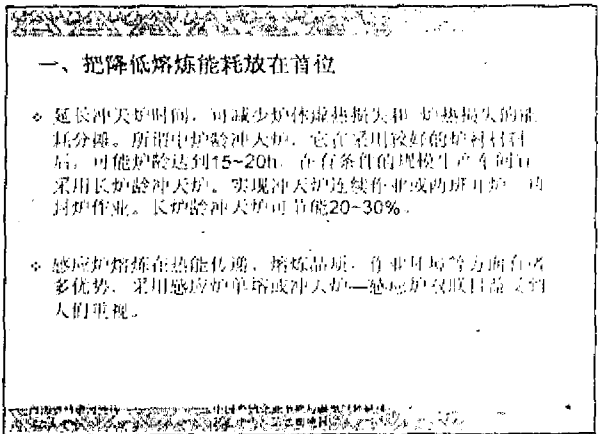 一、把降低熔炼能耗放在首位
延长冲天炉时间，可减少炉体虚热损失和 炉热损失的能
耗分摊。所谓中炉龄冲天炉，它在采用较好的炉衬材料
后，可能炉龄达到15~20h，在有条件的规模生产车间宜
采用长炉龄冲天炉。实现冲天炉连续作业或两班开炉一
封炉作业。长炉龄冲天炉可节能20~30%。
感应炉熔炼在热能传递、熔炼品质、作业环境等方面有诸
多优势，采用感应炉单熔或冲天炉—感应炉双联日益受到
人们重视。